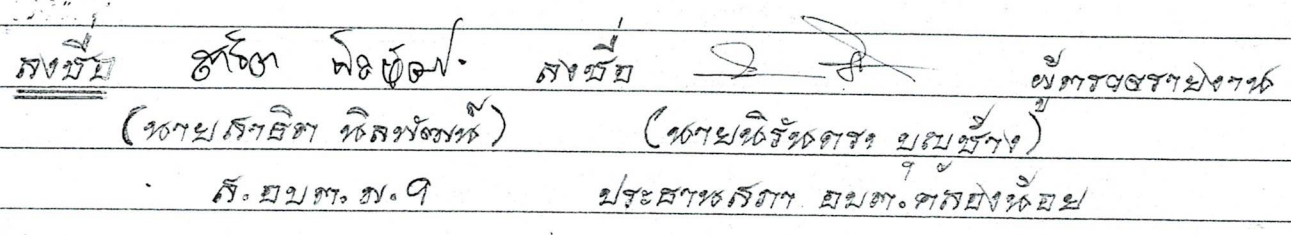 ลงชื่อ สาธิต ลงชื่อ ผู้ตรวจรายงาน
(นายสาธิต นิลพัฒน์) (นายนิรันดร บุญช้าง)
ส.อบต.ม.๑ ประธานสภา อบต.คลองน้อย